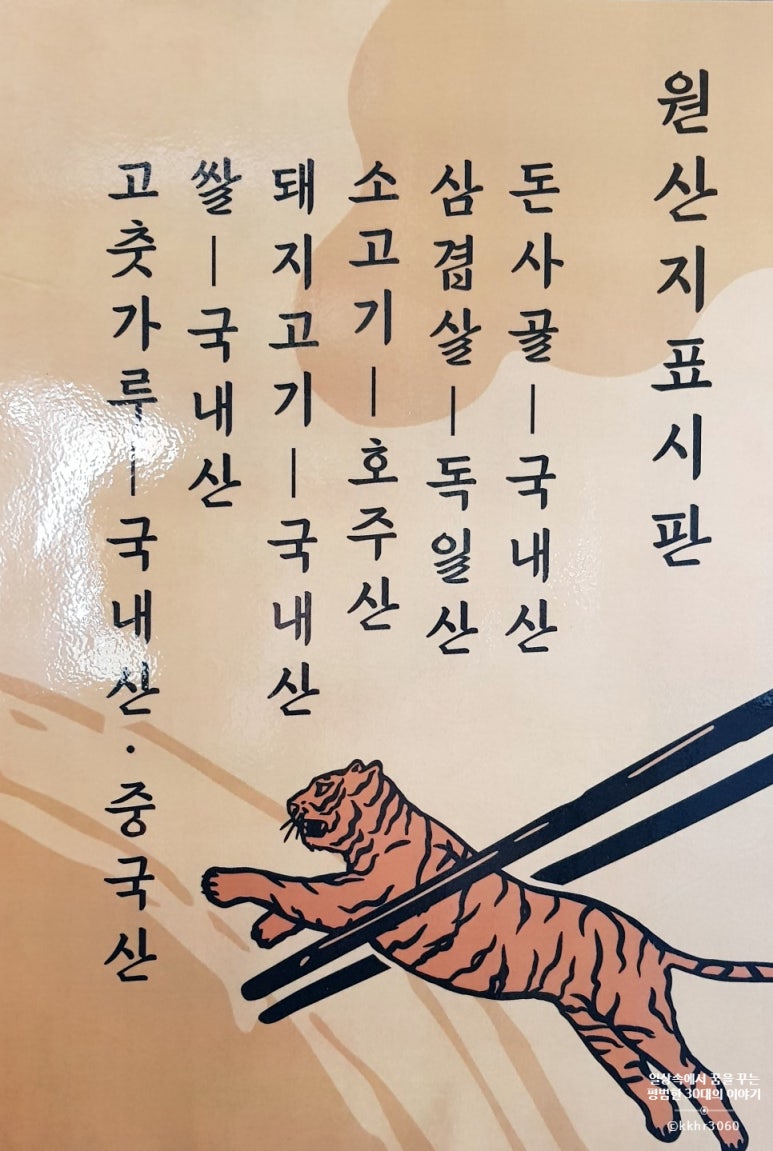 원산지표시판
돈사골ㅡ국내산
삼겹살ㅡ독일산
소고기ㅡ호주산
돼지고기ㅡ국내산
쌀ㅡ국내산
고춧가루ㅡ국내산·중국산
일상속에서 꿈을 꾸는
평범한 30대의 이야기
©kkhr3060